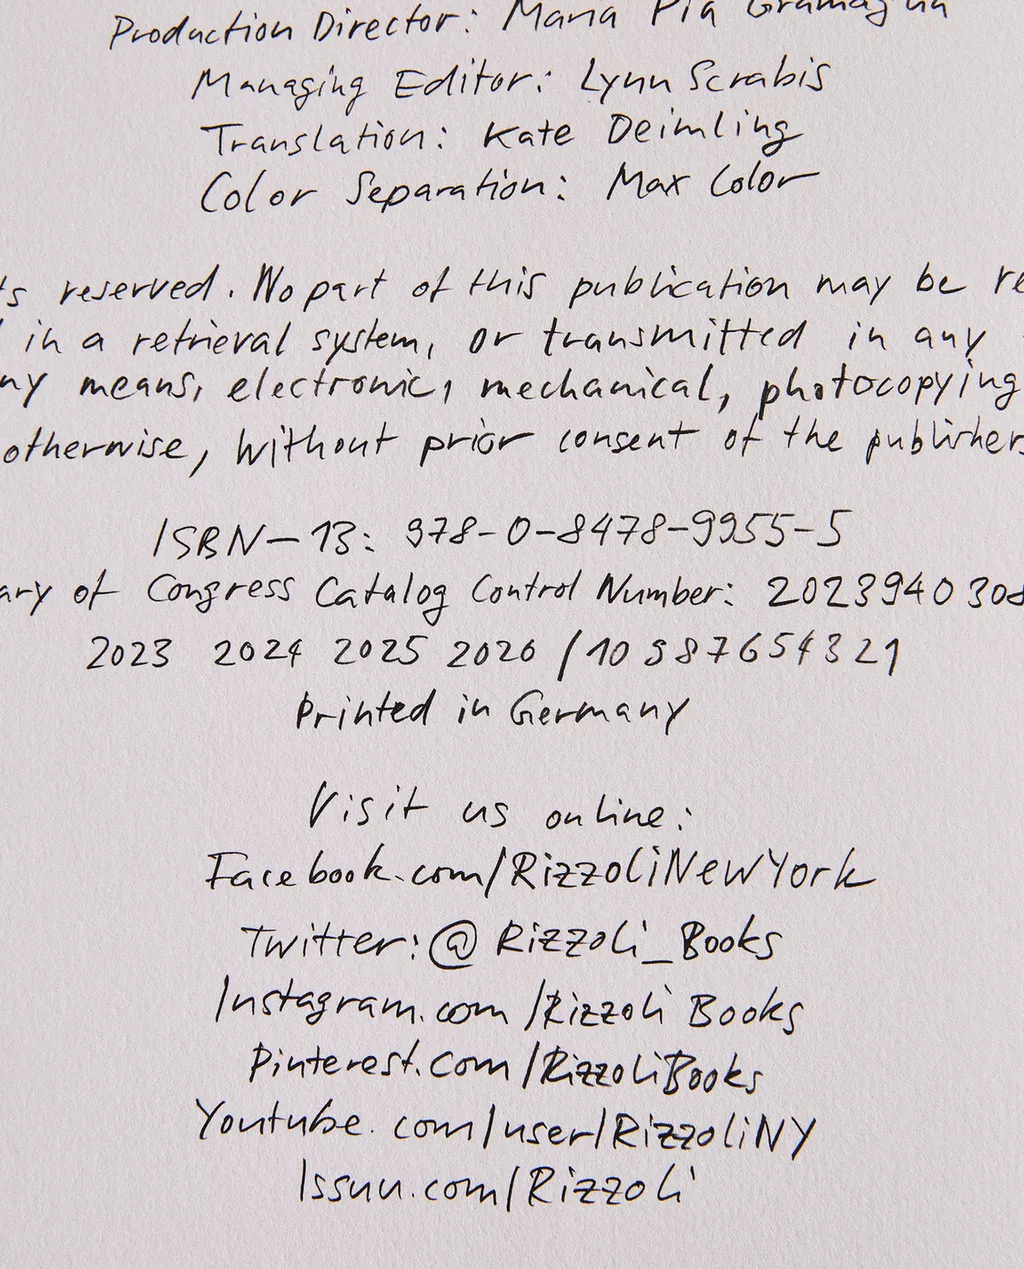 Production Director: Maria Pia Gramaglia
Managing Editor: Lynn Scrabis
Translation: Kate Deimling
Color Separation: Max Color
ts reserved. No part of this publication may be re
in a retrieval system, or transmitted in any
ny means, electronic, mechanical, photocopying
otherwise, without prior consent of the publishers
ISBN-13: 978-0-8478-9955-5
ary of Congress Catalog Control Number: 2023940308
2023 2024 2025 2026 / 10 9 8 7 6 5 4 3 2 1
Printed in Germany
Visit us online:
Facebook.com/RizzoliNewYork
Twitter: @Rizzoli_Books
Instagram.com/RizzoliBooks
Pinterest.com/RizzoliBooks
Youtube.com/user/RizzoliNY
Issuu.com/Rizzoli